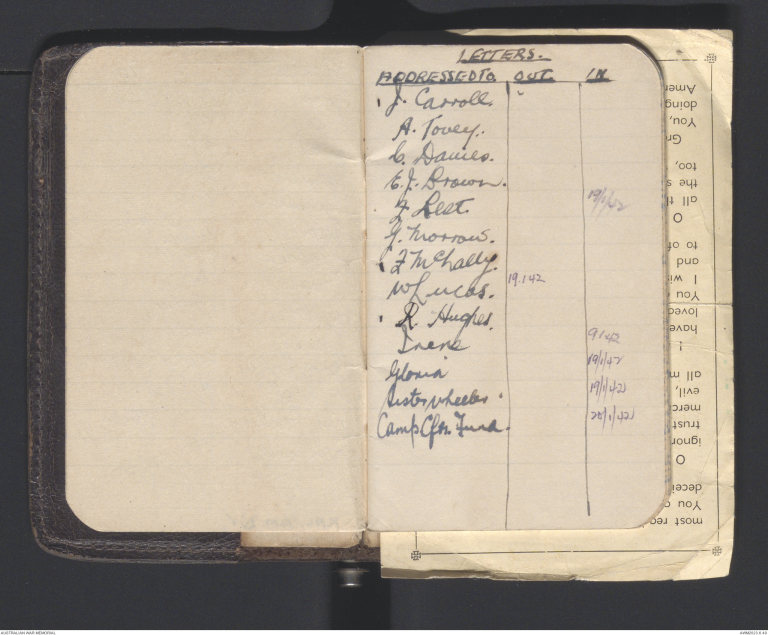 LETTERS.
ADDRESSED TO OUT. IN
J. Carroll.
A. Tovey.
C. Davies.
E.J. Brown.
F. Lest. 19/1/42
G. Morrow.
F McNally.
W Lucas. 19.1.42
R. Hughes.
Irene 9.1.42
Gloria 19/1/42
Sister Wheeler 19/1/42
Camp Cfn. Fund. 20/1/42
most rec
You
decei
O
ignor
trust
merc
evil,
all m
I
have
loved
You
I wi
and
of to
O
all t
the s
too,
Gr
You,
doing
Amer
AUSTRALIAN WAR MEMORIAL